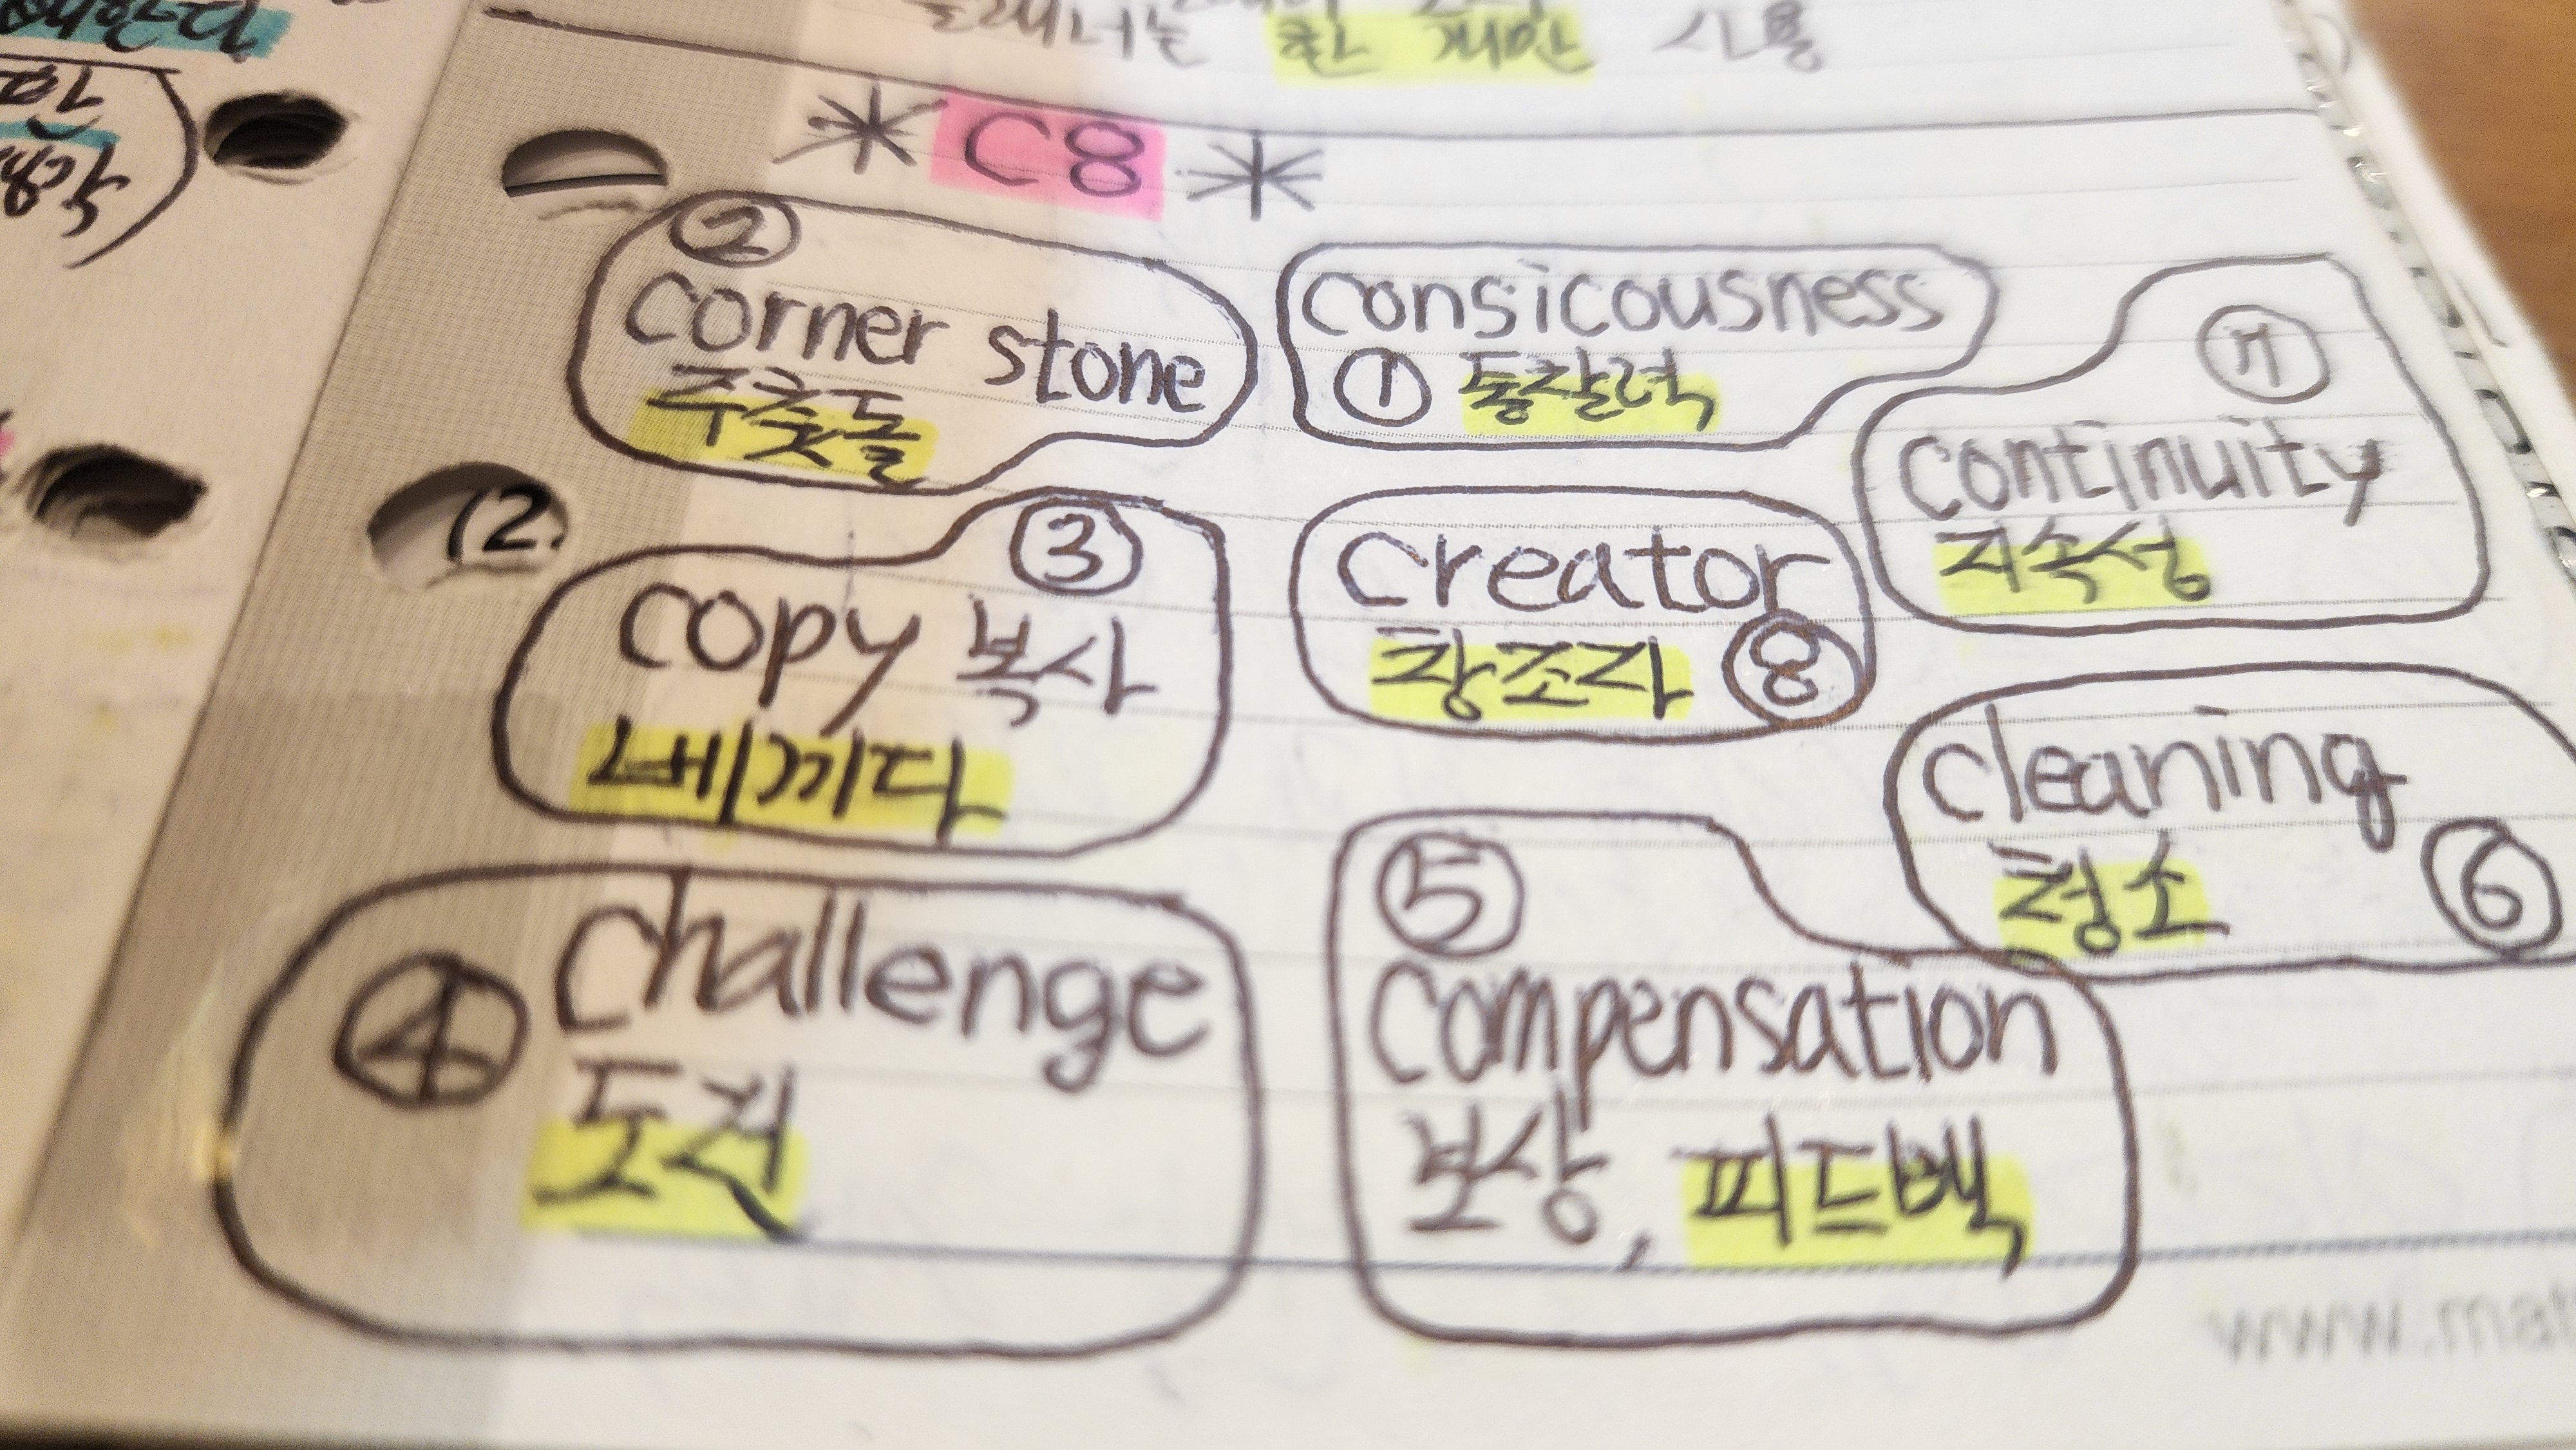 플래너는 한 개만 사용
* C8 *
②
corner stone
주춧돌
consicousness
① 통찰력
⑦
continuity
지속성
③
copy 복사
베끼다
creator
창조자 ⑧
cleaning
청소 ⑥
④ challenge
도전
⑤
compensation
보상, 피드백
(2.
www.mat